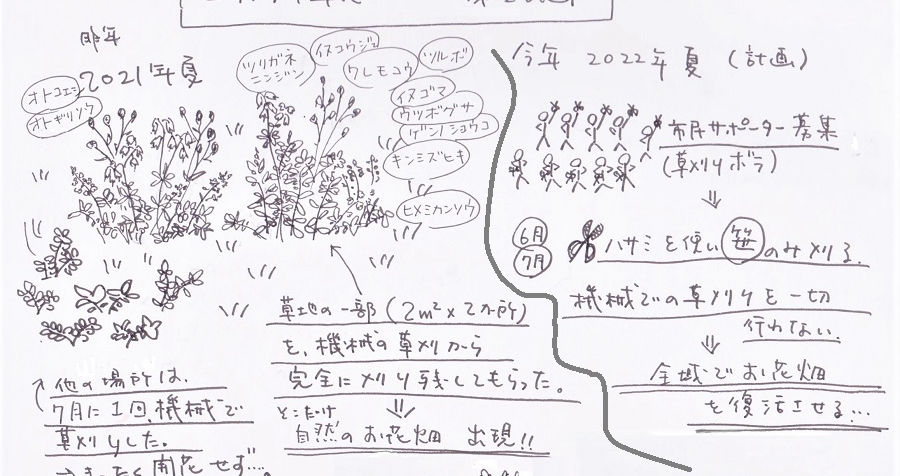 昨年
2021年夏
オトコエシ
オトギリソウ
ツリガネ
ニンジン
イヌコウジュ
ワレモコウ
ツルボ
イヌゴマ
ウツボグサ
ゲンノショウコ
キンミズヒキ
ヒメミカンソウ
草地の一部(2m²×2カ所)
を、機械の草刈から
完全に刈り残してもらった。
⇓
そこだけ
自然のお花畑 出現!!
他の場所は、
7月に1回、機械で
草刈りした。
→まったく開花せず…。
今年 2022年夏 (計画)
市民サポーター募集
(草刈りボラ)
⇓
6月
7月
ハサミを使い笹のみ刈る。
機械での草刈りを一切
行わない。
⇓
全域でお花畑
を復活させる…